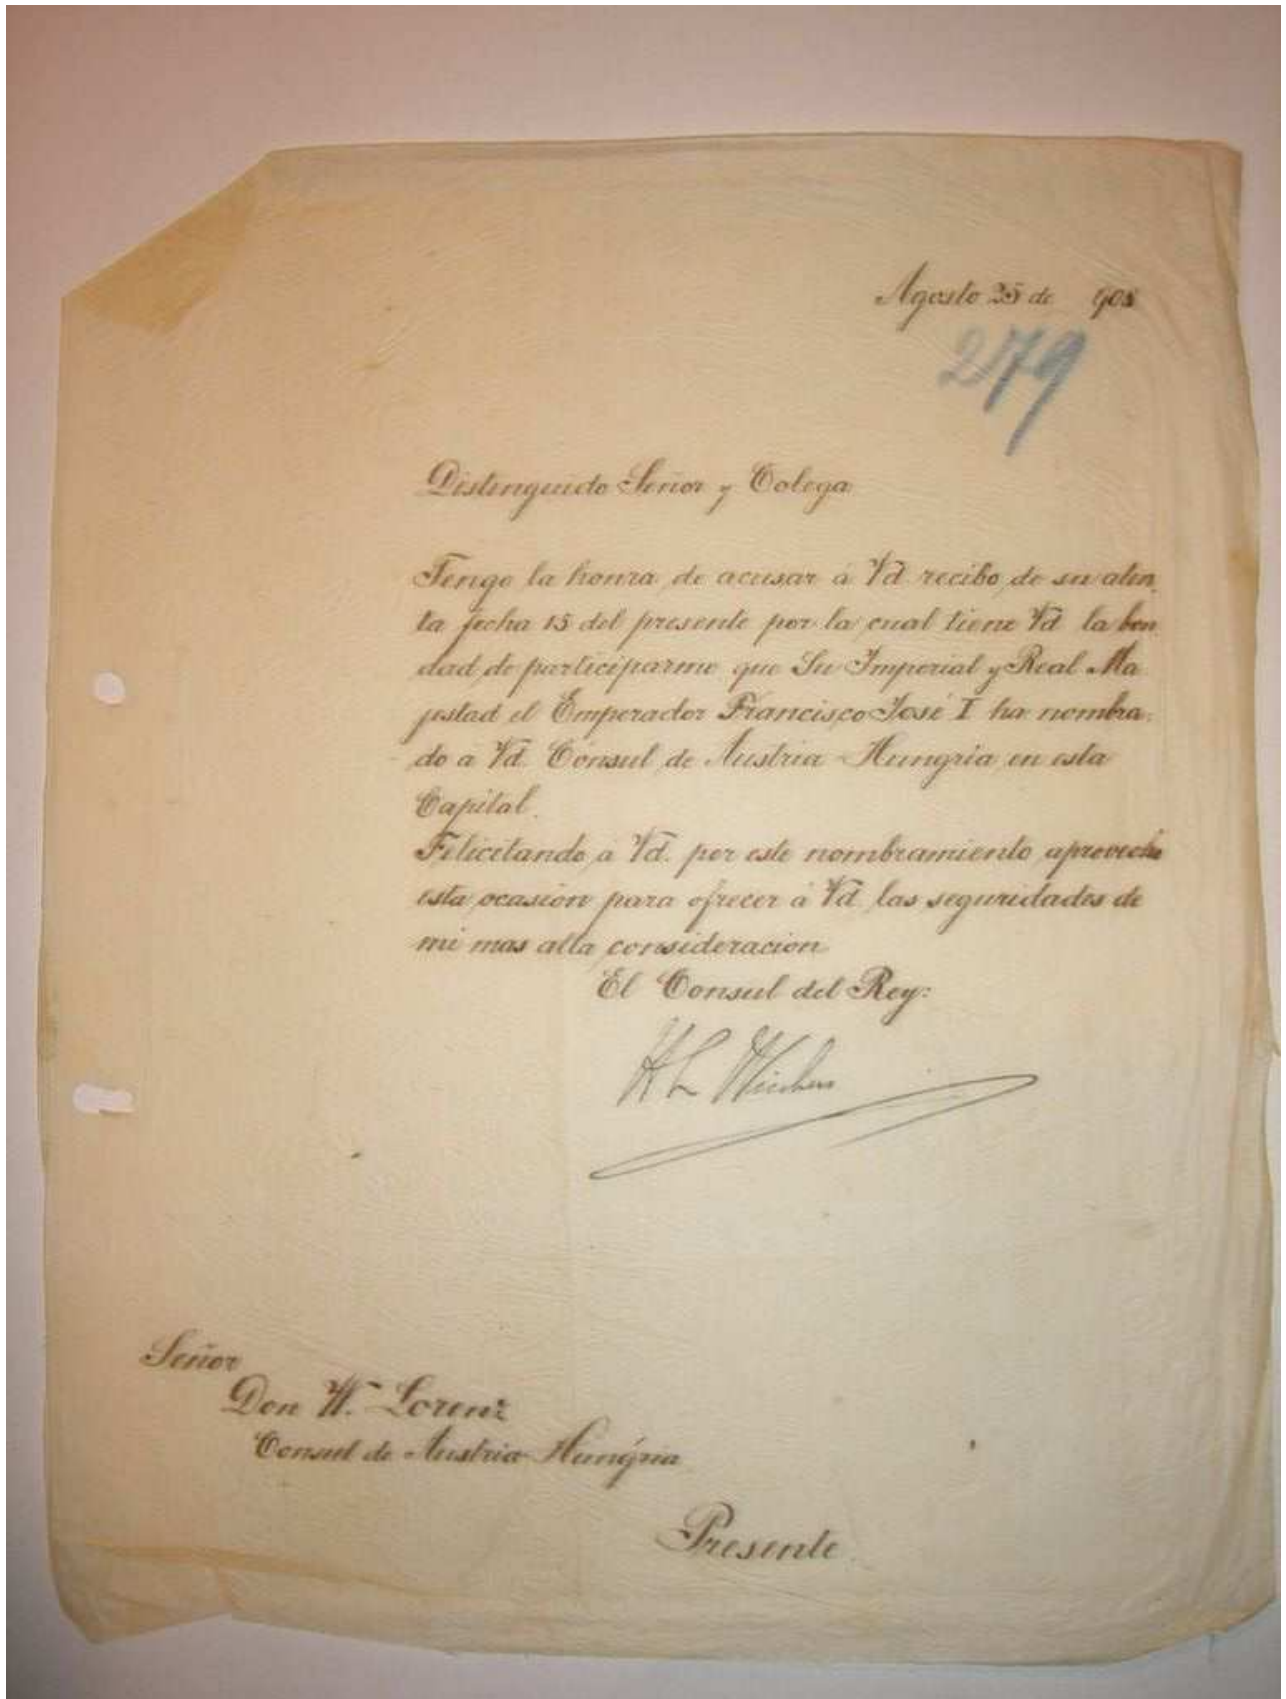 Agosto 25 de 908
279
Distinguido Señor y Colega
Tengo la honra de acusar á Vd. recibo de su aten
ta fecha 15 del presente por la cual tiene Vd. la bon
dad de participarme que Su Imperial y Real Ma
jestad el Emperador Francisco José I ha nombra
do a Vd. Cónsul de Austria-Hungria en esta
Capital.
Felicitando a Vd. por este nombramiento aprovecho
esta ocasión para ofrecer á Vd. las seguridades de
mi mas alta consideracion
El Consul del Rey:
H L
Señor
Don W. Lorenz
Consul de Austria-Hungria
Presente.